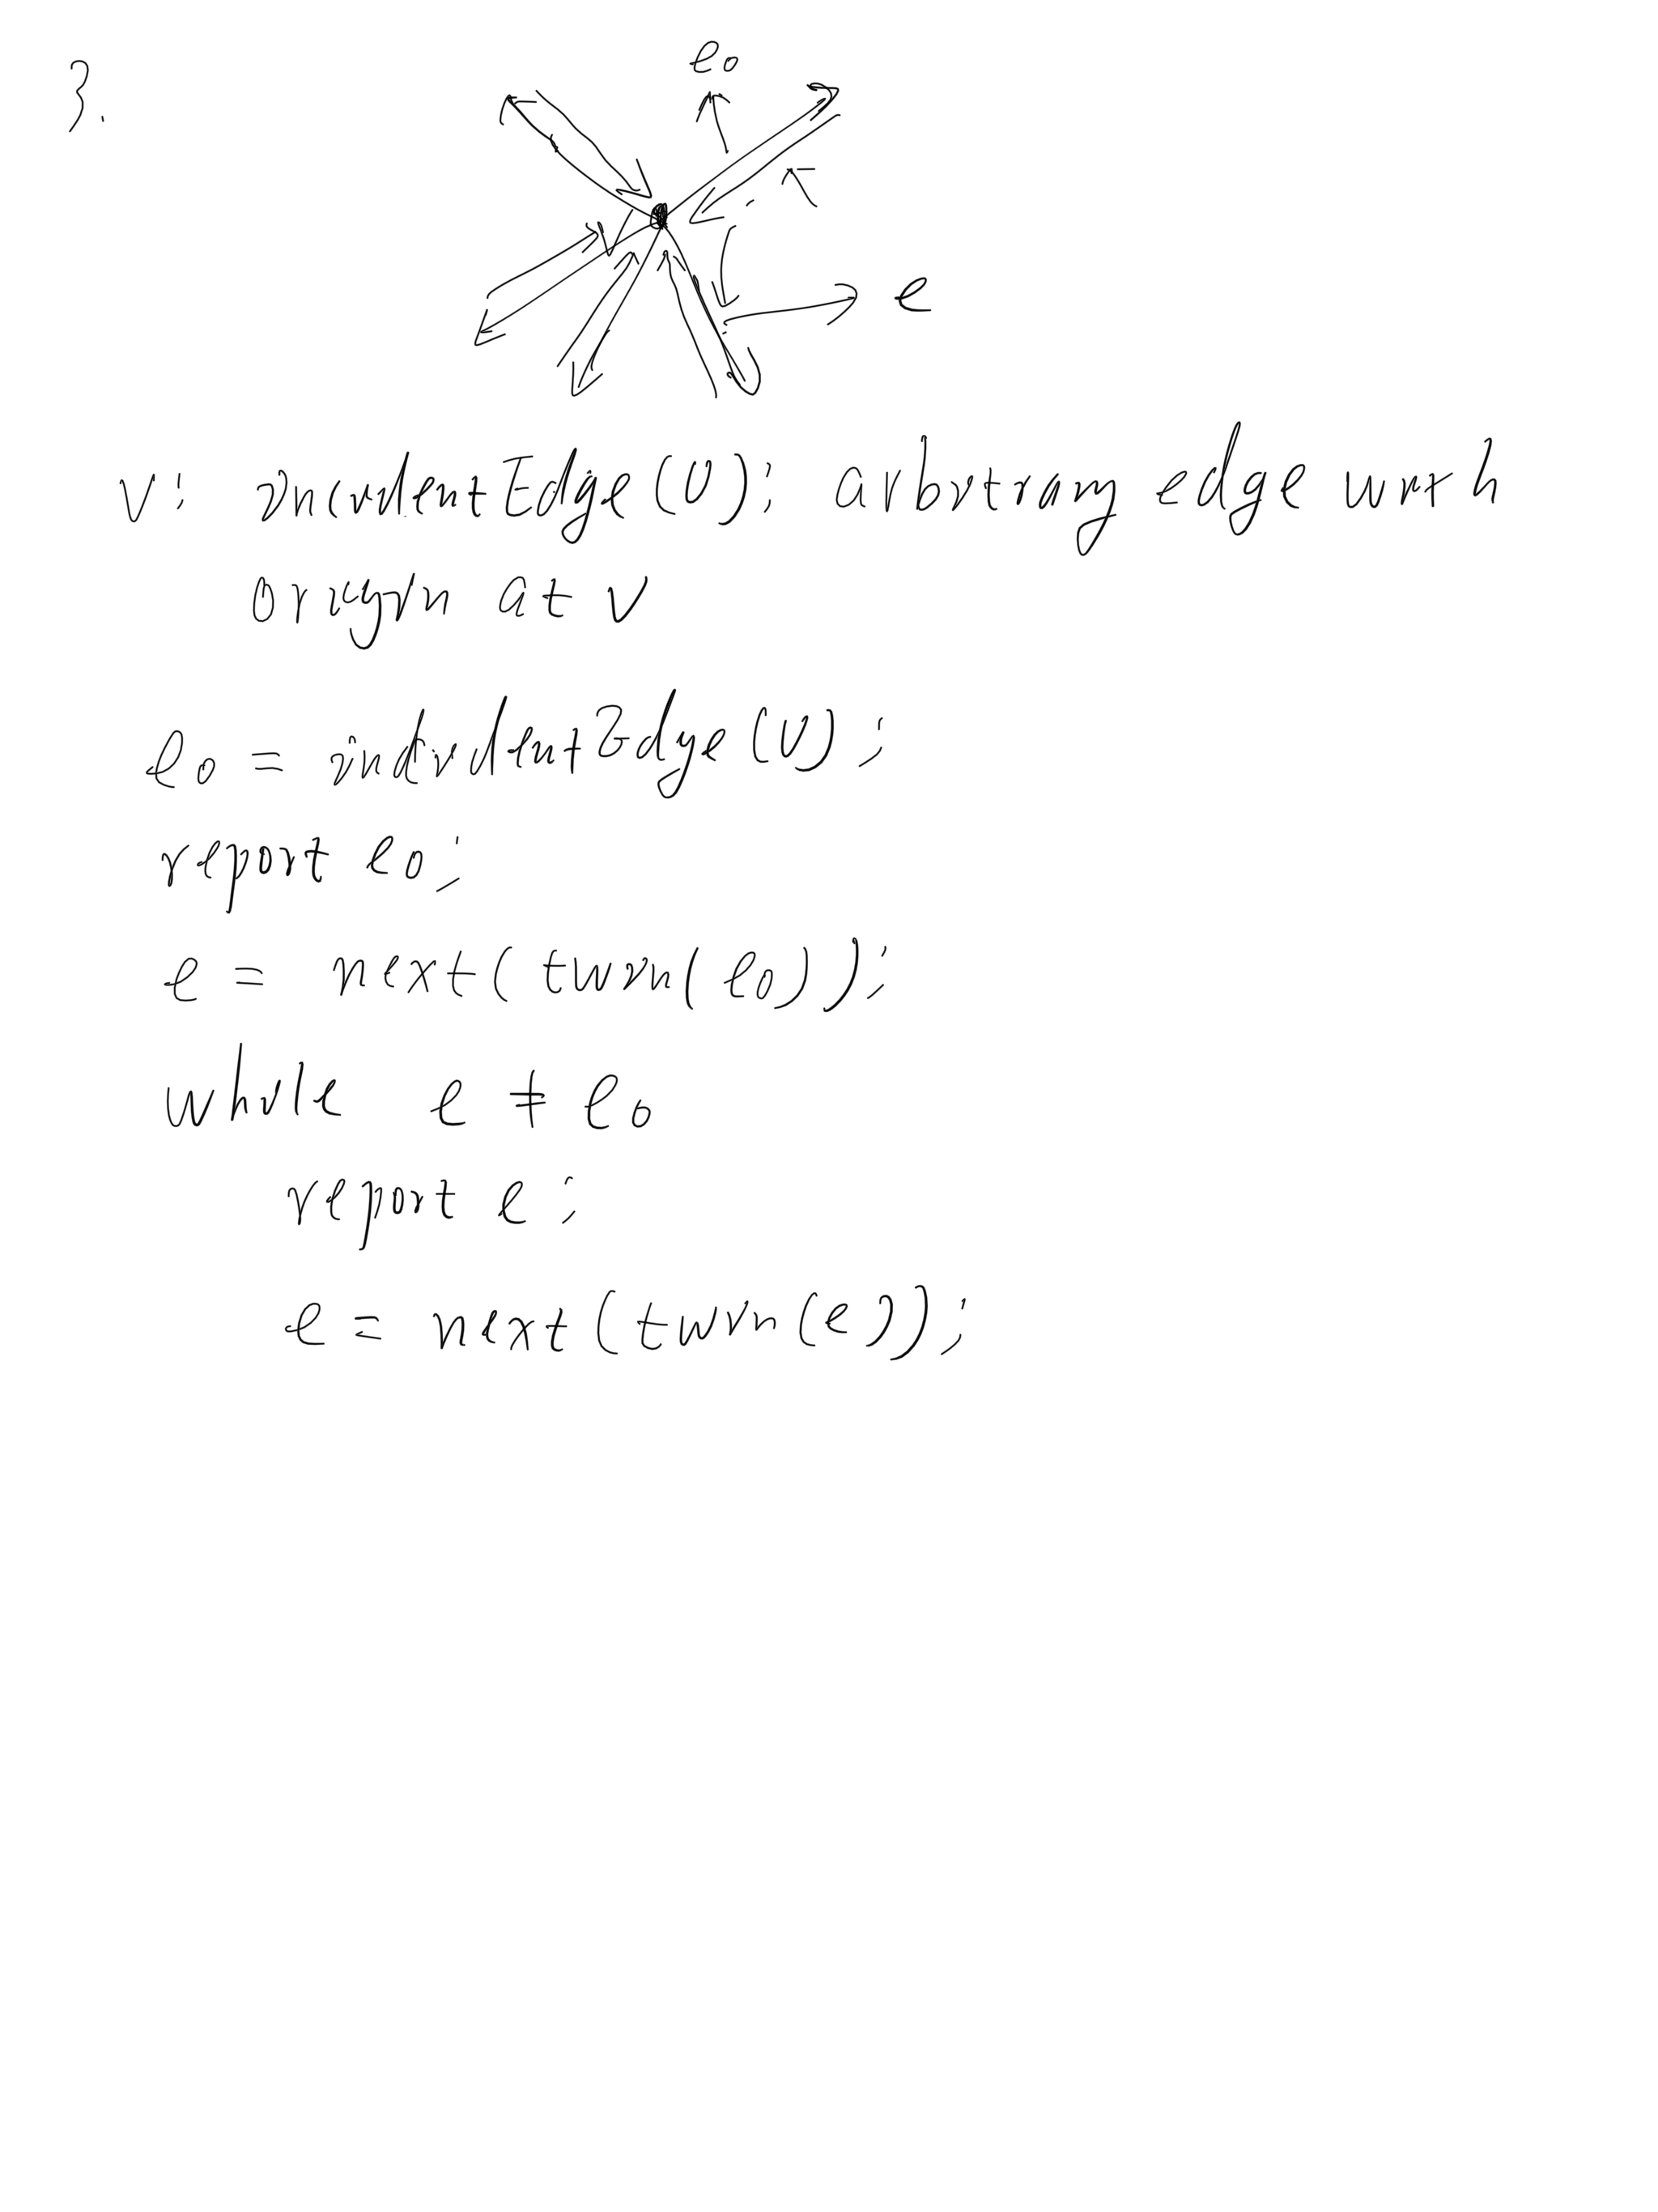 3.
e₀
e
v: IncidentEdge(v); arbitrary edge with
origin at v
e₀ = incidentEdge(v);
report e₀;
e = next(twin(e₀));
while e ≠ e₀
report e;
e = next(twin(e));